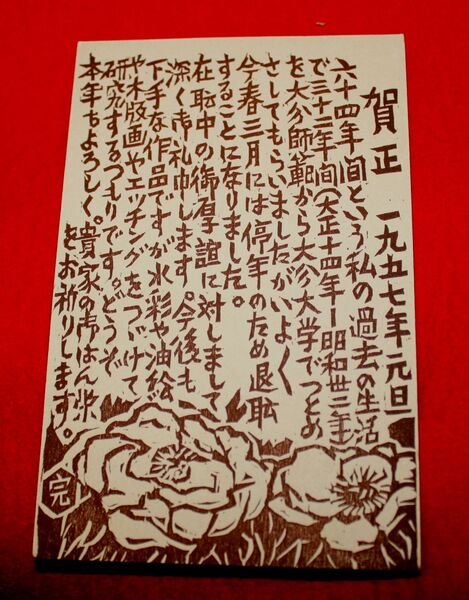 賀正　一九五七年元旦
六十四年間という私の過去の生活
で三十二年間(大正十四年ー昭和卅二年)
を大分師範から大分大学でつとめ
さしてもらいましたがいよく
今春三月には停年のため退耺
することになりました。
在耺中の御厚誼に対しまして
深く御礼申します。今後も
下手な作品ですが水彩や油絵
や木版画やエッチングをつづけて
研究するつもりです。どうぞ
本年もよろしく。貴家の御はん栄
をお祈りします。
完